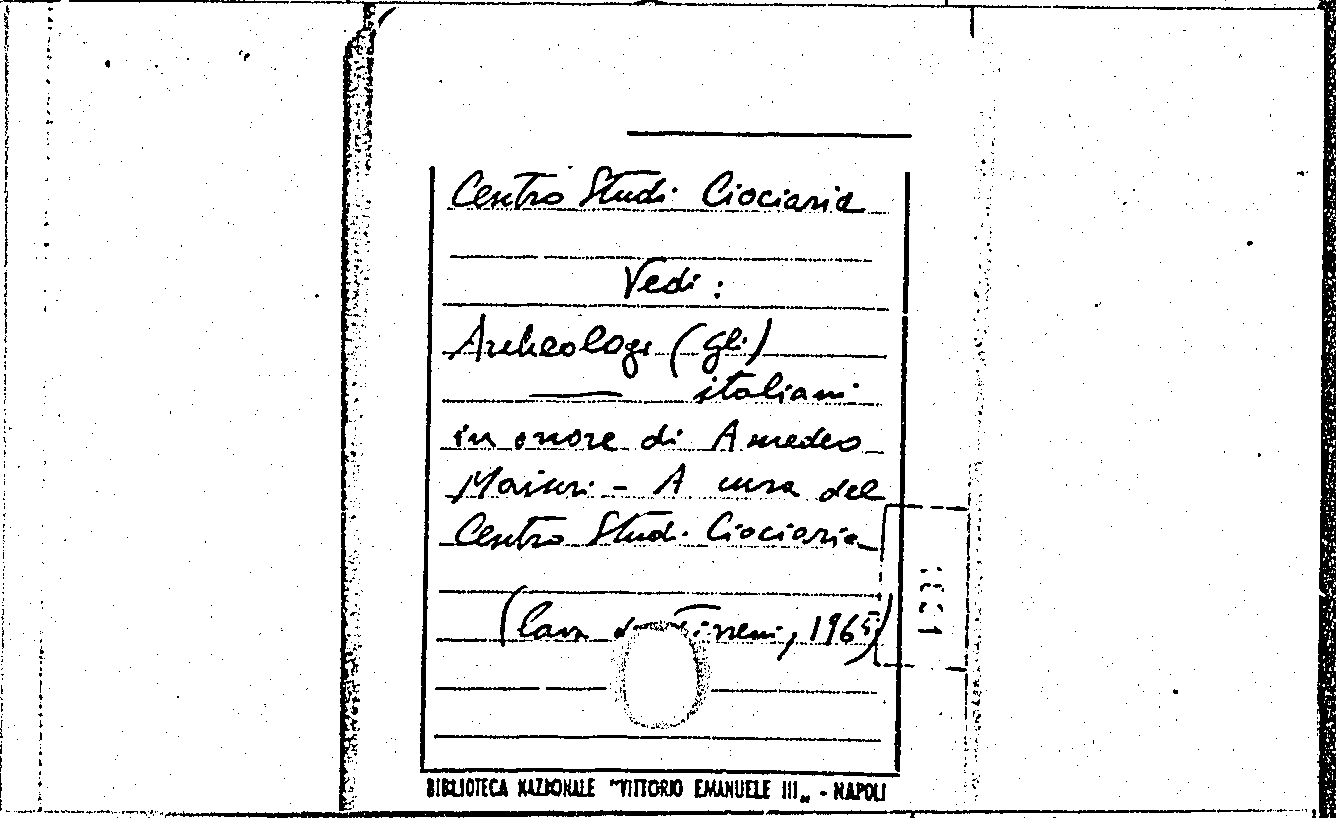 Centro Studi Ciociaria
Vedi :
Archeologi (gli)
—— italiani
in onore di Amedeo
Maiuri - A cura del
Centro Studi Ciociaria
(Cava dei Tirreni, 1965)
BIBLIOTECA NAZIONALE "VITTORIO EMANUELE III„ - NAPOLI